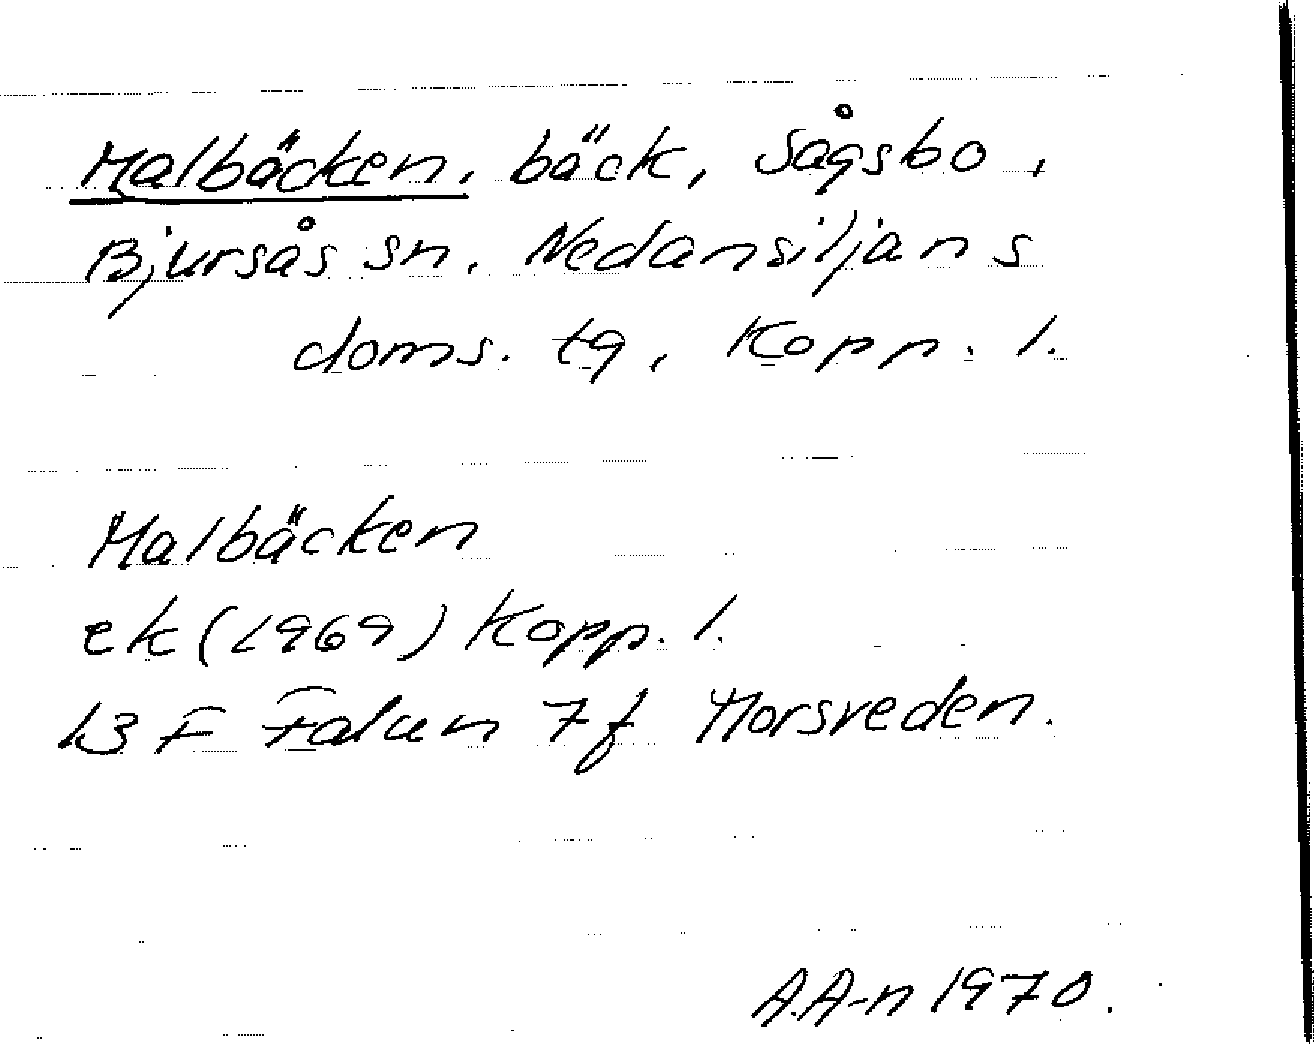 Malbäcken, bäck, Sågsbo,
Bjursås sn, Nedansiljans
doms. tg, Kopp. l.
Malbäcken
ek (1969) Kopp. l.
13 F Falun 7f Morsveden.
A.A-n 1970.